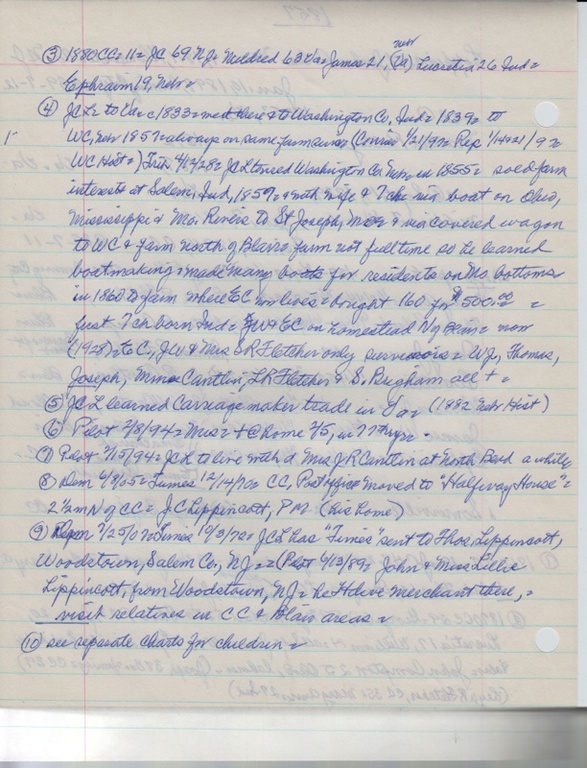 ③ 1880 CC= 11= JC 69 NJ= Mildred 63 Va= James 21, Nebr (Va) Lucretia 26 Ind=
Ephraim 19, Nebr=
④ JCL= to Va= c1833= med there= to Washington Co, Ind= 1839= to
WC, Nebr 1857= always on same farm (Comin 1/21/92= Rep 1/14+21/92=
WC Hist=) Trib 4/12/28= JCL toured Washington Co Nebr in 1855= sold farm
interests at Salem, Ind, 1857= & with wife & 7 ch= via boat on Ohio,
Mississippi & Mo. Rivers to St Joseph, Mo= & via covered wagon
to WC & farm north of Blair= farm not full time so he learned
boatmaking= made many boats for residents on Mo bottoms
in 1860 to farm where EC now lives= bought 160 for $500.00 =
first 7 ch born Ind= JW & EC on homestead N of Blair= now
(1928)= EC, JW & Mrs SR Fletcher only survivors= WJ, Thomas,
Joseph, Minnie Cantlin, LR Fletcher & S. Brigham all + =
⑤ JCL learned carriage maker trade in Va= (1882 Nebr Hist)
⑥ Pilot 2/8/94= Mrs= + @ home 2/5, in 77th yr=
⑦ Pilot 7/5/94= JCL to live with d Mrs J R Cantlin at North Bend a while
⑧ Dem 4/9/65= Times 12/14/70= CC, Post office moved to "Halfway House"=
2½ m N of CC= JC Lippincott, P.M. (his home)
⑨ 9/25/07= Times 10/3/72= JCL has "Times" sent to Thos Lippincott,
Woodstown, Salem Co, NJ== (Pilot 6/13/89= John & Miss Lillie
Lippincott, from Woodstown, NJ= he merchant there, =
visit relatives in CC & Blair areas=
⑩ see separate charts for children=